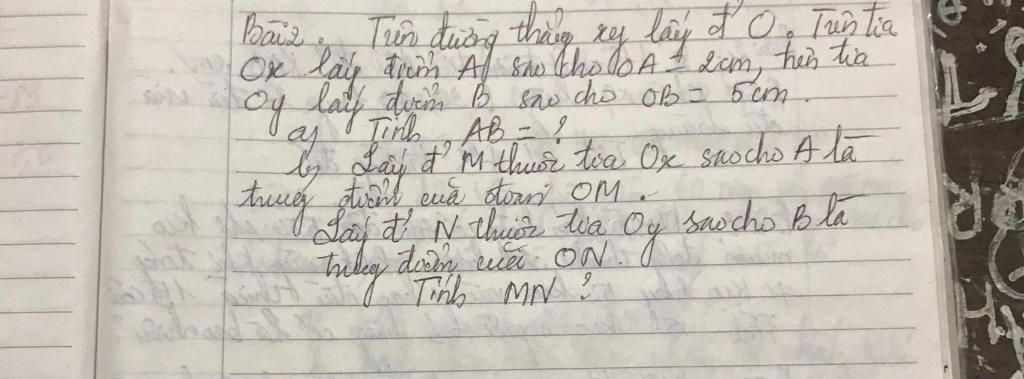 Bài 2. Trên đường thẳng xy lấy đ' O. Trên tia
Ox lấy điểm A sao cho OA = 2cm, trên tia
Oy lấy điểm B sao cho OB = 5cm.
a) Tính AB = ?
b) Lấy đ' M thuộc tia Ox sao cho A là
trung điểm của đoạn OM.
Lấy đ' N thuộc tia Oy sao cho B là
trung điểm của ON.
Tính MN ?